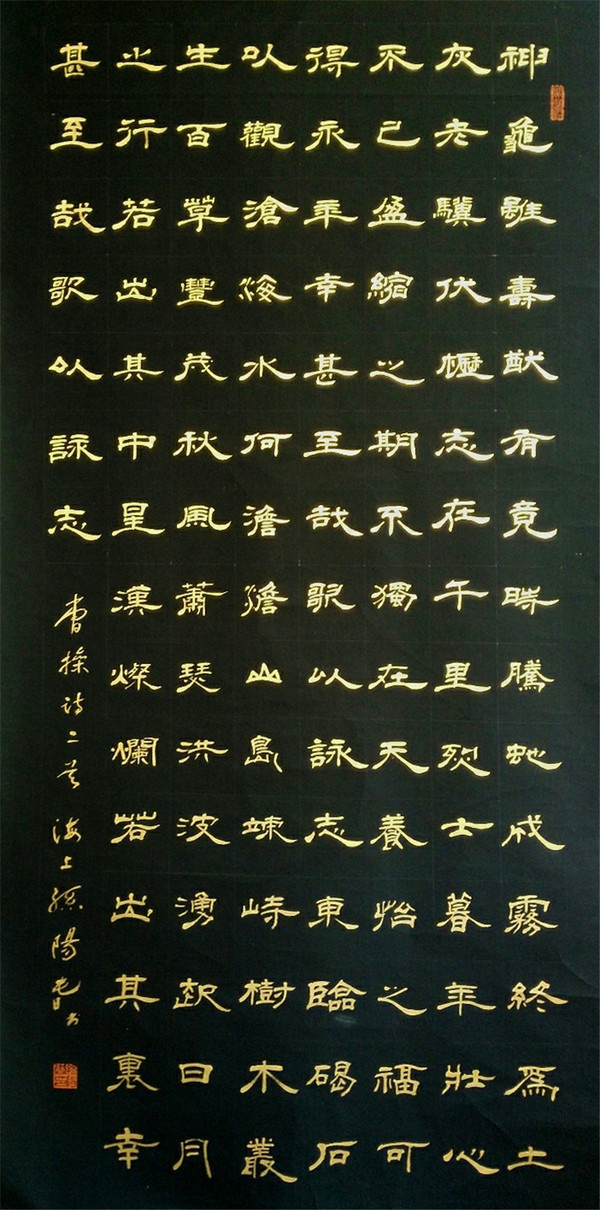 神龜雖壽猷有竟時騰虵成霧終爲土
灰老驥伏櫪志在千里烈士暮年壯心
不已盈縮之期不獨在天養怡之福可
得永年幸甚至哉歌以詠志東臨碣石
以觀滄海水何澹澹山島竦峙樹木叢
生百草豐茂秋風蕭瑟洪波湧起日月
之行若出其中星漢燦爛若出其裏幸
甚至哉歌以詠志
曹操诗二首 海上 陽 书